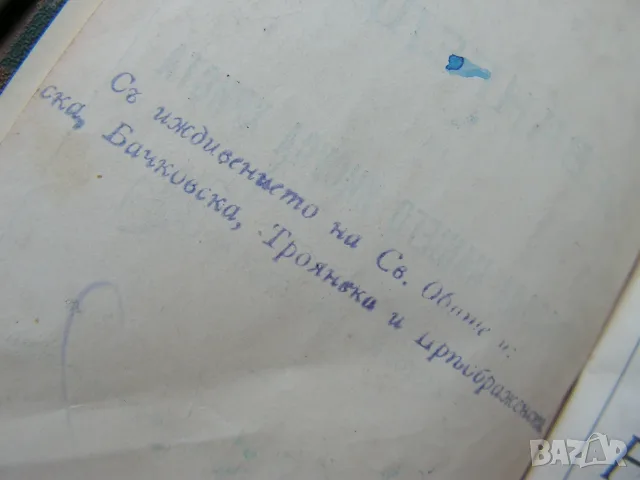 Съ иждивението на Св. Обите
ска, Бачковска, Троянска и Преображенск
BAZAR